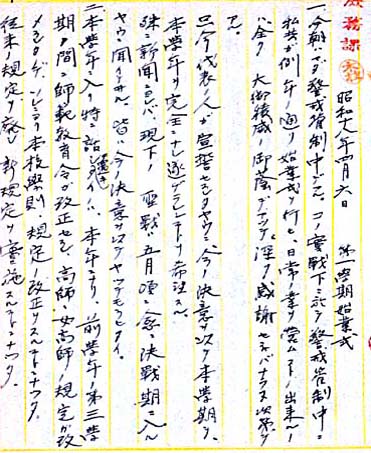 庶務課
昭和十八年四月六日　第一学期始業式
一、今朝ハマダ警戒管制中デアル コノ實戰下ニ於テ警戒管制中ニ
私共ガ例年ノ通リ始業式ヲ行ヒ、日常ノ業ヲ營ムコトノ出来ルノ
ハ全ク 大御稜威ノ御蔭デアツテ、深ク感謝セネバナラヌ次第デ
アル。
只今代表ノ人ガ宣誓セルヤウニ、今ノ決意ヲ以テ本學期ヲ、
本學年ヲ完全ニナシ遂ゲラレンコトヲ希望ス。
殊ニ新聞ニヨレバ、現下ノ 聖戰ハ五月頃ニ愈々決戰期ニ入ル
ヤウニ聞イテヰル。皆ハ今ノ決意ヲ以テヤツテモラヒタイ。
二、本學年ニ入リ特ニ話シタイノハ、本年三月 前學年ノ第三學
期ノ間ニ師範教育令ガ改正セラレ、高師、女高師ノ規定ガ改
メラレタ。ソレニヨリ本校學則 規定ノ改正ヲスルコトニナツタ。
従来ノ規定ヲ廢シ 新規定ヲ實施スルコトニナツタ。